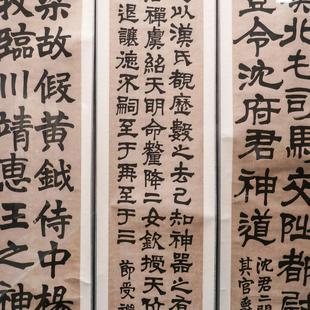 北屯司馬交阯都尉
令沈府君神道
沈君二闕
其官爵
以漢氏觀歷數之去己知神器之有
禪虞紹天明命釐降二女欽授天位
退讓德不嗣至于再至于三
節受禪
梁故假黃鉞侍中楊
臨川靖惠王之神